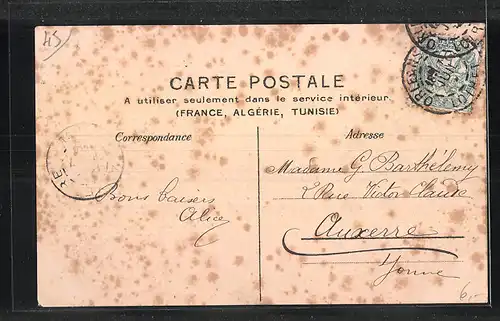 45
CARTE POSTALE
A utiliser seulement dans le service intérieur
(FRANCE, ALGÉRIE, TUNISIE)
Correspondance
Adresse
Bons baisers
Alice
Madame G. Barthélemy
2 Rue Victor Claude
Auxerre
Yonne
6,-
ORLEANS
LOIRET